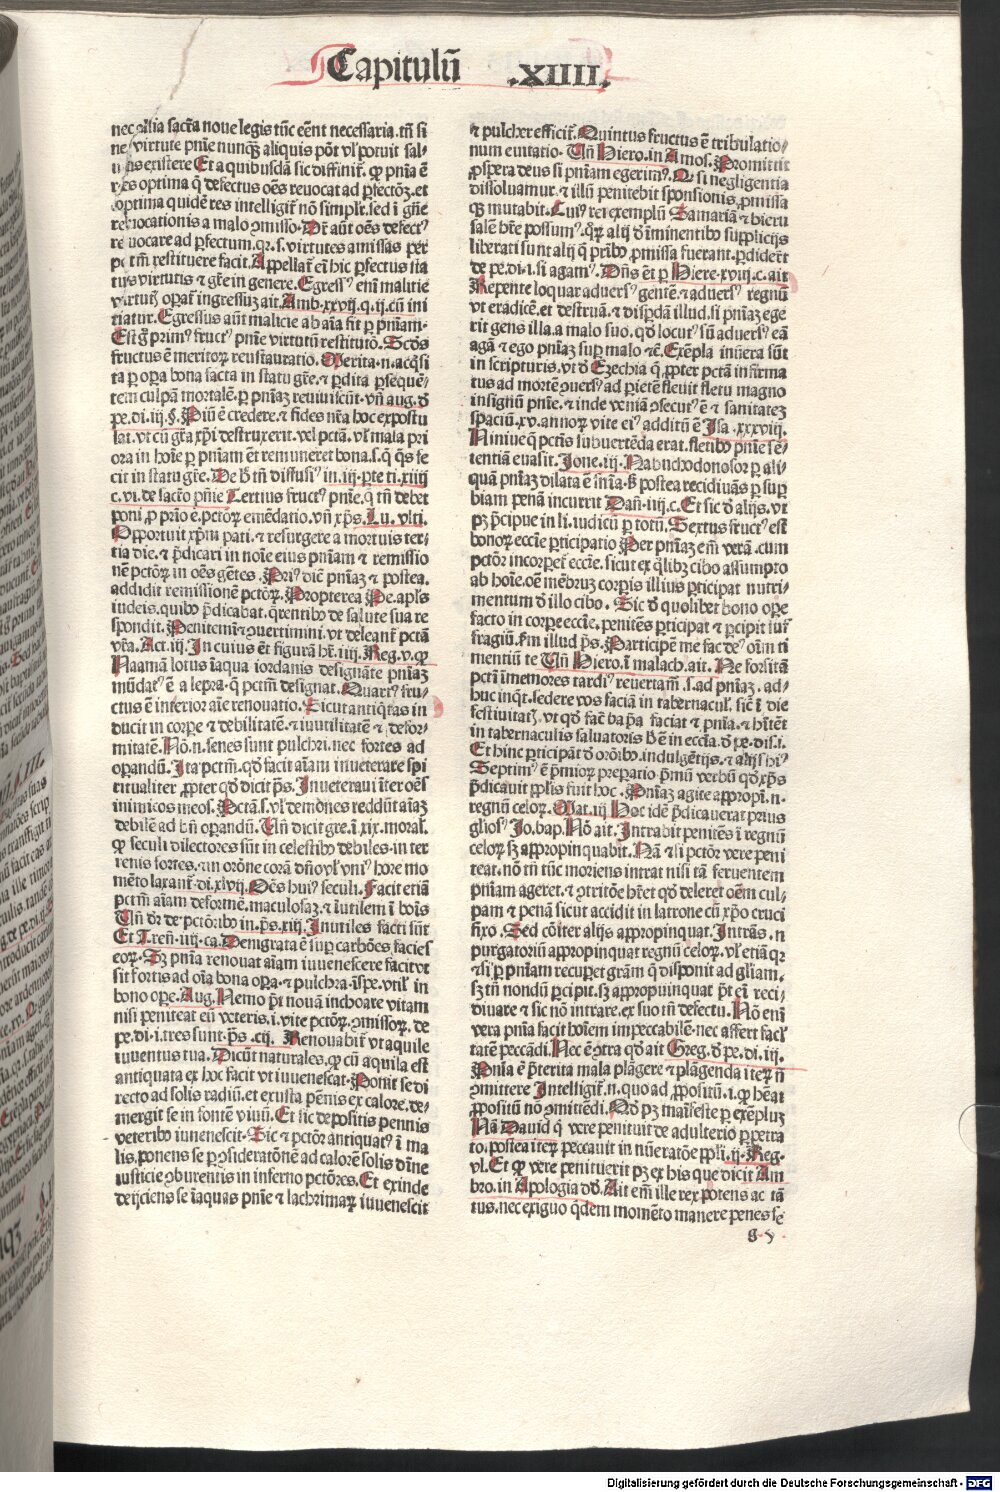 Capitulū .XIIII.
nec alia sacr̄a noue legis tūc eēnt necessaria. tn̄ si
ne virtute pnīe nunq̄ȝ aliquis pōt vl̓ potuit sal-
existere Et a quibusdā sic diffinit̄. qꝙ pnīa ē
res optima q̄ defectus oēs reuocat ad ꝑfectōȝ. et
optima quidē res intelligit̄ nō simplr̄. sed ī gn̄e
reuocationis a malo ꝯmisso. Dr̄ aūt oēs defectꝰ
reuocare ad ꝑfectum. qꝛ. s. virtutes amissas per
pctm̄ restituere facit. Appellat̄ eī hic ꝑfectus sta
tus virtutis ⁊ gr̄e in genere. Egressꝰ eni malicie
virtutꝭ oꝑat̄ ingressū ait. Amb. xxvij. q. ij. cū ini
riatur. Egressus aūt malicie ab aīa fit ꝑ pnīam.
Est g̊ primꝰ fructꝰ pnīe virtutū restitutō. Scd̓s
fructus ē meritoꝝ reustauratio. Merita. n. acq̄si
ta ꝑ oꝑa bona facta in statu gr̄e. ⁊ ꝑdita ꝑ seque-
tem culpā mortalē. ꝑ pnīaȝ reuiuiscūt. vn̄ aug. d̓
pe. di. iij. §. Piū ē credere. ⁊ fides nr̄a hoc expostu
lat. vt cū gr̄a xp̄i destruxerit. vel pctā. vl̓ mala pri
ora in hoīe ꝑ pnīam ēt remuneret bona. s. q̄ q̄s fe
cit in statu gr̄e. De ħ tn̄ diffusiꝰ in. iij. ꝑte ti. xiiij
c. vi. de sacr̄o pn̄ie Tertius fructꝰ pnīe. q̄ tn̄ debet
poni ꝑ prīo ē. pctōꝝ emēdatio. vn̄ xp̄s. Lu. vlti.
Opportuit xp̄m pati. ⁊ resurgere a mortuis ter-
tia die. ⁊ p̄dicari in noīe eius pnīam ⁊ remissio
nē pctōꝝ in oēs gētes. Priꝰ dic̄ pnīaȝ ⁊ postea.
addidit remissionē pctōꝝ. Propterea Pe. apl̓s
iudeis. quibꝰ p̄dicabat. q̄rentibꝰ de salute sua re
spondit. Penitemī ⁊ ꝯuertimini. vt deleant̄ pctā
vr̄a. Act. iij. In cuius ēt figurā hr̄. iiij. Reg. v. qꝙ
Naamā lotus ī aqua iordanis designāte pnīaȝ
mūdatꝰ ē a lepra. q̄ pctm̄ designat. Quartꝰ fru-
ctus ē inferior aīe renouatio. Sicut antiq̄tas in
ducit in corꝑe ⁊ debilitatē. ⁊ inutilitatē ⁊ defor-
mitatē. Nō. n. senes sunt pulchri. nec fortes ad
oꝑandū. Ita pctm̄. qd̓ facit aīam inueterare spi
ritualiter ꝓpter qd̓ dicit p̄s. Inueteraui īter oēs
inimicos meos. Pctā. s. vl̓ demōnes reddūt aīaȝ
debilē ad bn̄ oꝑandū. Un̄ dicit gre. ī. xix. moral̓.
qꝙ seculi dilectores sūt in celestibꝰ debiles. in ter
renis fortes. an orōne corā dn̄o vl̓ vniꝰ hore mo
mēto laxant̄. di. xlvij. Oēs huiꝰ seculi. Facit etiā
pctm̄ aīam deformē. maculosaȝ. ⁊ īutilem ī bōis
Un̄ dr̄ de pctōribꝰ in. p̄s. xiij. Inutiles facti sūt
Et Tren̄. iiij. ca. Denigrata ē suꝑ carbōes facies
eoꝝ. Sȝ pnīa renouat aīam iuuenescere facit vt
sit fortis ad oīa bona oꝑa. ⁊ pulchra. īspe. vtil̓ in
bono oꝑe. Aug. Nemo pt̄ nouā inchoare vitam
nisi peniteat eū veteris. i. vite pctōꝝ. ꝯmissoꝝ. de
pe. di. i. tres sunt. p̄s. cij. Renouabit̄ vt aquile
iuuentus tua. Dicūt naturales. qꝙ cū aquila est
antiquata ex hoc facit vt iuuenescat. Ponit se di
recto ad solis radiū. et exusta pēnis ex calore. de-
mergit se in fontē viuū. Et sic depositis pennis
veteribꝰ iuuenescit. Sic ⁊ pctōr antiquatꝰ ī ma
lis. ponens se ꝑ ꝯsideratōnē ad calorē solis dīne
iusticie ꝯburentis in inferno pctōres. Et exinde
deijciens se ī aquas pnīe ⁊ lachrimaꝝ iuuenescit
⁊ pulcher efficit̄. Quintus fructus ē tribulatio-
num euitatio. Un̄ Hiero. in Amos. Promittit
ꝓspera deus si pnīam egerimꝰ. Q si negligentia
dissoluamur. ⁊ illū penitebit sponsionis ꝓmissa
qꝫ mutabit. Cuiꝰ rei exemplū Samariā ⁊ hieru
salē hr̄e possumꝰ. qꝝ alij d̓ īminentibꝰ suppliciis
liberati sunt alij q̄ pribꝰ ꝓmissa fuerant. ꝑdiderūt
de pe. di. i. si agamꝰ. Dn̄s ēt ꝑ Hiere. xviij. c. ait
Repente loquar aduersꝰ gentē. ⁊ aduersꝰ regnū
vt eradicē. et destruā. ⁊ disꝑdā illud. si pnīaȝ ege
rit gens illa. a malo suo. qd̓ locutꝰ sū aduersꝰ eā
agā ⁊ ego pnīaȝ suꝑ malo ⁊c̄. Exēpla inuēra sūt
in scripturis. vt d̓ Ezechia q̄ ꝓpter pctā infirma
tus ad mortē ꝯuersꝰ ad ꝑietē fleuit fletu magno
insignū pnīe. ⁊ inde veniā ꝯsecutꝰ ē ⁊ sanitateȝ
spaciū. xv. annoꝝ vite eiꝰ additū ē Isa. xxxviij.
Niniue q̄ pctn̄s subuertēda erat. fletibꝰ pnīe sē-
tentiā euasit. Jone. iij. Nabuchodonosor ꝑ ali-
quā pnīaȝ dilata ē snīa. ħ postea recidiuās ꝑ suꝑ
biam penā incurrit Dan̄. iiij. c. Et sic d̓ alijs. vt
pȝ p̄cipue in li. iudicū ꝑ totū. Sextus fructꝰ est
bonoꝝ eccīe ꝑticipatio Per pnīaȝ em̄ verā. cum
pctōr incorꝑet̄ eccīe. sicut ex qͣlibȝ cibo assumpto
ab hoīe. oē mēbruȝ corꝑis illius ꝑticipat nutri-
mentum d̓ illo cibo. Sic d̓ quolibet bono oꝑe
facto in corꝑe eccīe. penitēs ꝑticipat ⁊ ꝑcipit suf
fragiū. s̄m illud p̄s. Participē me fac deꝰ oīm ti
mentiū te Un̄ Hiero. ī malach. ait. Ne forsitā
pctī īmemores tardiꝰ reuertam̄. s. ad pnīaȝ. ad-
huc inqt̄. sedere vos faciā in tabernacul̓. sic̄ ī die
festiuitatꝭ. vt qd̓ fac̄ bap̄a faciat ⁊ pnīa. ⁊ hītēt
in tabernaculis saluatoris ħ ē in eccīa. d̓ pe. dis. i.
Et hinc ꝑticipāt d̓ orōibꝰ. indulgētijs. ⁊ alijs hꝰ
Septimꝰ ē p̄mioꝝ preparatio p̄mū verbū qd̓ xp̄s
p̄dicauit ppl̓is fuit hoc. Pnīaȝ agite appropī. n.
regnū celoꝝ. Mat. iij Hoc idē p̄dicauerat prius
gl̓iosꝰ Jo. bap. Nō ait. Intrabit penitēs ī regnū
celoꝝ sȝ appropinquabit. Nā ⁊ si pctōr vere peni
teat. nō tn̄ tūc moriens intrat nisi tā feruentem
pnīam ageret. ⁊ ꝯtritōe hr̄et qd̓ deleret oēm cul-
pam ⁊ penā sicut accidit in latrone cū xp̄o cruci
fixo. Sed cōiter alijs appropinquat. Intrās. n
purgatoriū appropinquat regnū celoꝝ. vl̓ etiā qꝛ
⁊ si ꝑ pnīam recuꝑet gr̄am q̄ disponit ad gl̓iam.
sȝ tn̄ nondū ꝑcipit. sȝ appropuinquat pt̄ eī reci-
diuare ⁊ sic nō intrare. ex suo tn̄ defectu. Nō enī
vera pnīa facit hoīem impeccabilē. nec affert facl̓
tatē peccādi. Nec ē ꝯtra qd̓ ait Greg. d̓ pe. di. iij.
Pnīa ē p̄terita mala plāgere ⁊ plāgenda iteꝝ nō
ꝯmittere Intelligit̄. n. quo ad ꝓpositū. i. qꝙ hēat
ꝓpositū nō ꝯmittēdi. Nō pȝ manifeste ꝑ exēpluȝ
Nā Dauid q̄ vere penituit de adulterio ꝑpetra
to. postea iteꝝ peccauit in nūeratōe ppl̓i. ij. Reg.
vl. Et qꝙ vere penituerit pȝ ex his que dicit Am
bro. in Apologia dd̓. Ait em̄ ille rex potens ac tā
tus. nec exiguo qͥdem momēto manere penes se
g v
Digitalisierung gefördert durch die Deutsche Forschungsgemeinschaft - DFG